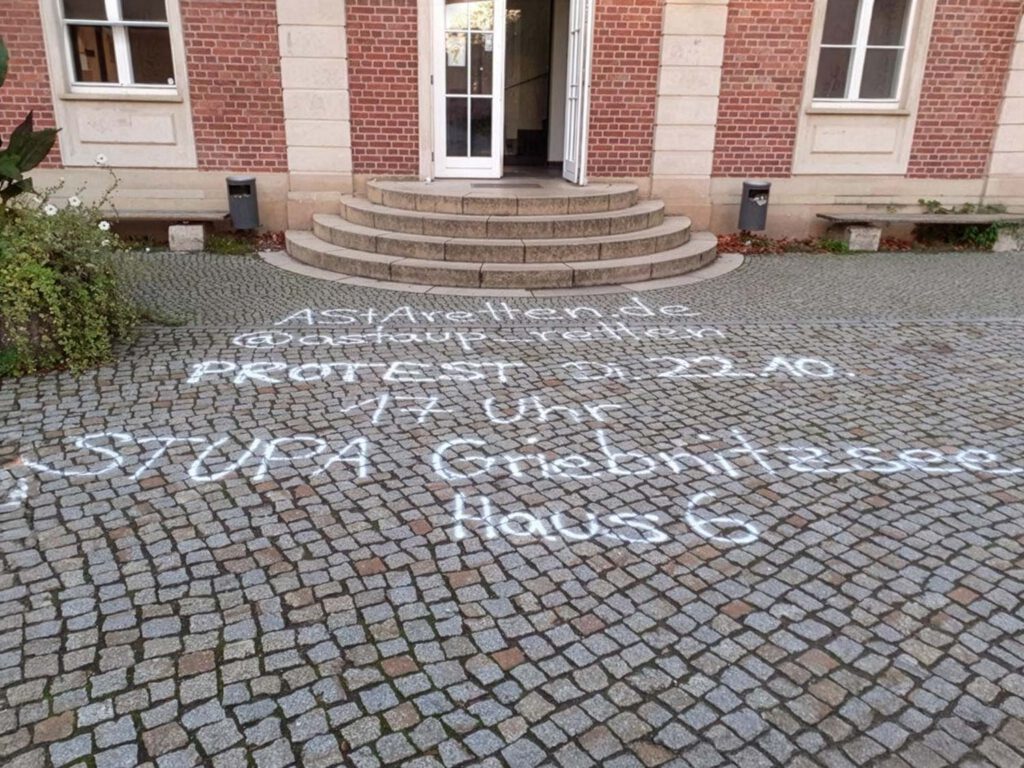 AStAretten.de
@astaup_retten
PROTEST Di. 22.10.
17 Uhr
STUPA Griebnitzsee
Haus 6